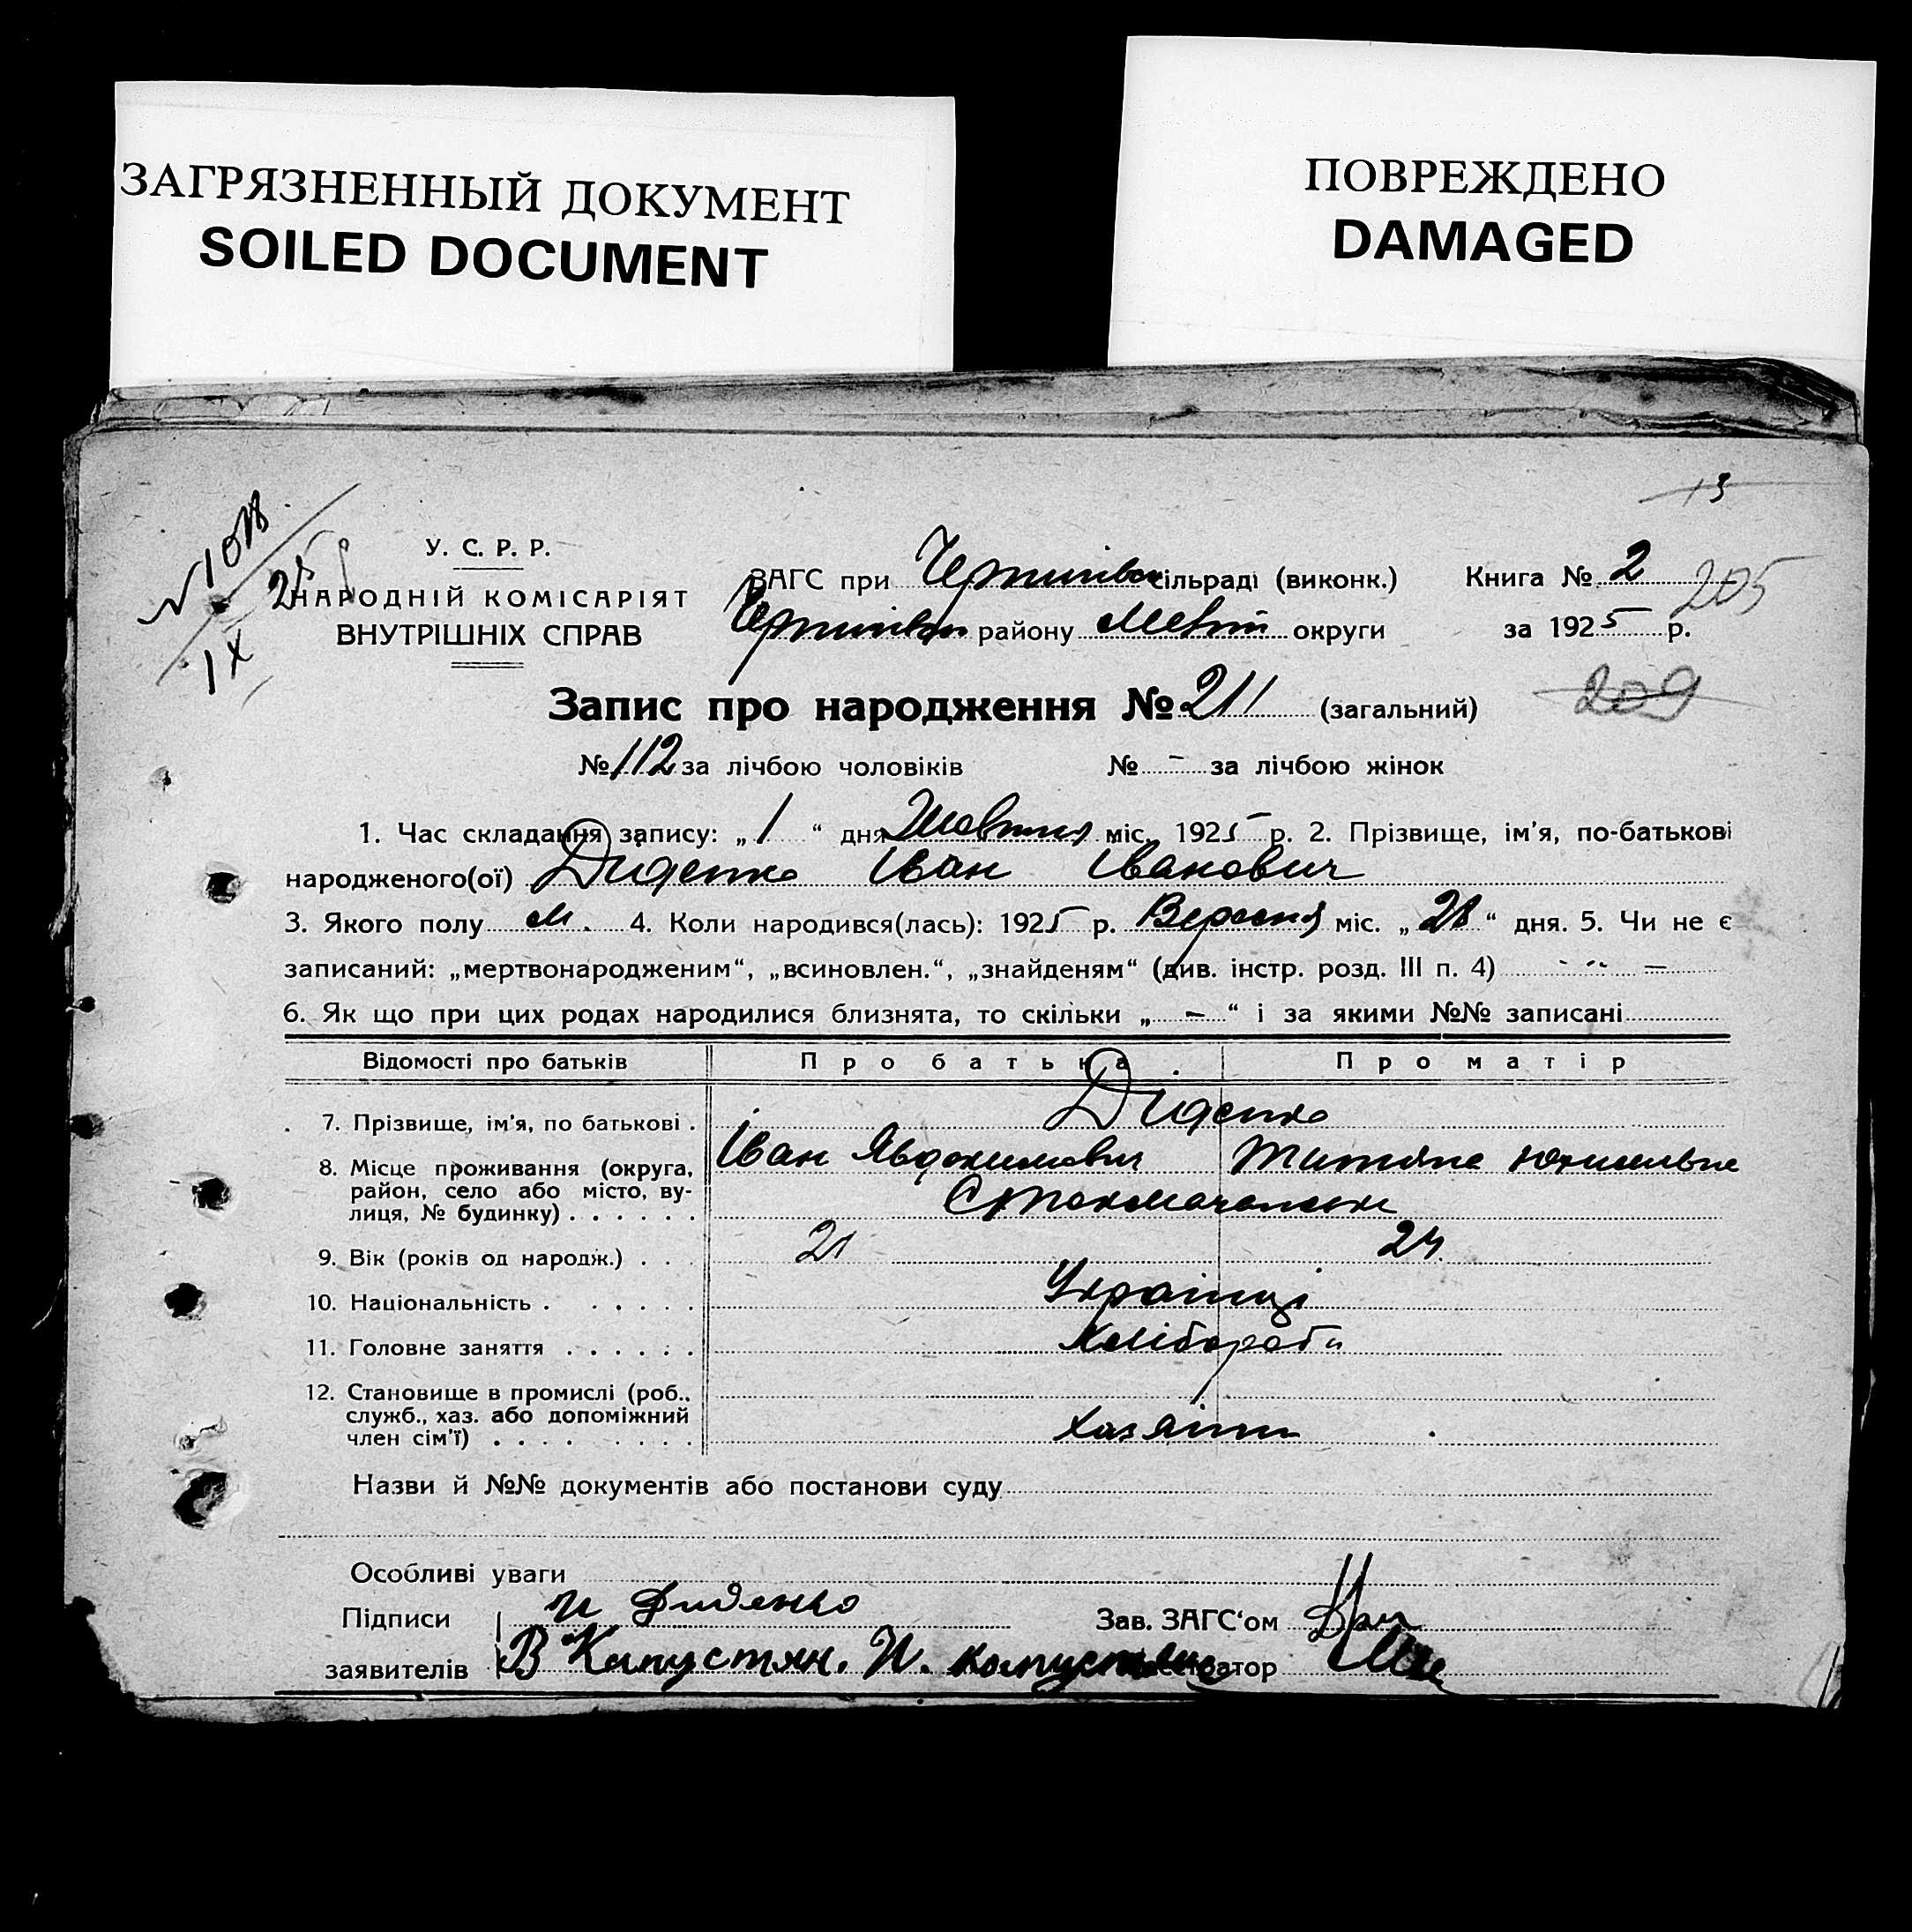 ЗАГРЯЗНЕННЫЙ ДОКУМЕНТ
SOILED DOCUMENT
ПОВРЕЖДЕНО
DAMAGED
13
У. С. Р. Р.
НАРОДНІЙ КОМІСАРІЯТ
ВНУТРІШНІХ СПРАВ
ЗАГС при сільраді (виконк.) Книга № 2
205
району округи за 1925 р.
Запис про народження № 211 (загальний) 209
№ 112 за лічбою чоловіків № - за лічбою жінок
1. Час складання запису: „ 1 “ дня Жовтня міс. 1925 р. 2. Прізвище, ім'я, по-батькові
народженого(ої) Диденко Іван Іванович
3. Якого полу м. 4. Коли народився(лась): 1925 р. Вересня міс. „ 28 “ дня. 5. Чи не є
записаний: „мертвонародженим“, „всиновлен.“, „знайденям“ (див. інстр. розд. III п. 4) —
6. Як що при цих родах народилися близнята, то скільки „ — “ і за якими №№ записані
Відомості про батьків Про батька Про матір
7. Прізвище, ім'я, по батькові . Діденко
Іван Явдокимович
8. Місце проживання (округа,
район, село або місто, ву-
лиця, № будинку) . . . . . .
9. Вік (років од народж.) . . . 21 24.
10. Національність . . . . . . Українці
11. Головне заняття . . . . . . Хлібороби
12. Становище в промислі (роб.,
служб., хаз. або допоміжний
член сім'ї) . . . . . . . . Хазяїни
Назви й №№ документів або постанови суду
Особливі уваги
Підписи И Диденко Зав. ЗАГС‘ом
заявителів В Капустян. И. Капустян